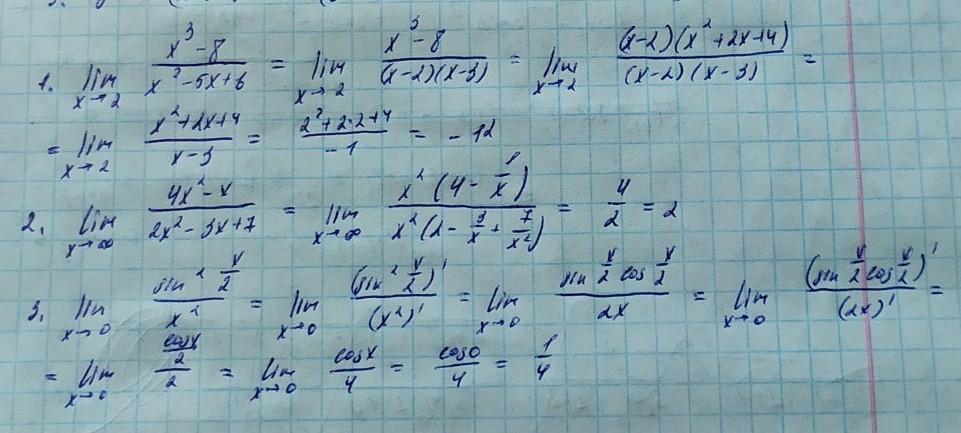 1. lim x→2 (x³-8)/(x²-5x+6) = lim x→2 (x³-8)/((x-2)(x-3)) = lim x→2 ((x-2)(x²+2x+4))/((x-2)(x-3)) =
= lim x→2 (x²+2x+4)/(x-3) = (2²+2·2+4)/(-1) = -12
2. lim x→∞ (4x²-x)/(2x²-3x+7) = lim x→∞ (x²(4-1/x))/(x²(2-3/x+7/x²)) = 4/2 = 2
3. lim x→0 (sin² x/2)/x² = lim x→0 (sin² x/2)'/(x²)' = lim x→0 (sin x/2 cos x/2)/(2x) = lim x→0 (sin x/2 cos x/2)'/(2x)' =
= lim x→0 (cosx/2)/2 = lim x→0 cosx/4 = cos0/4 = 1/4